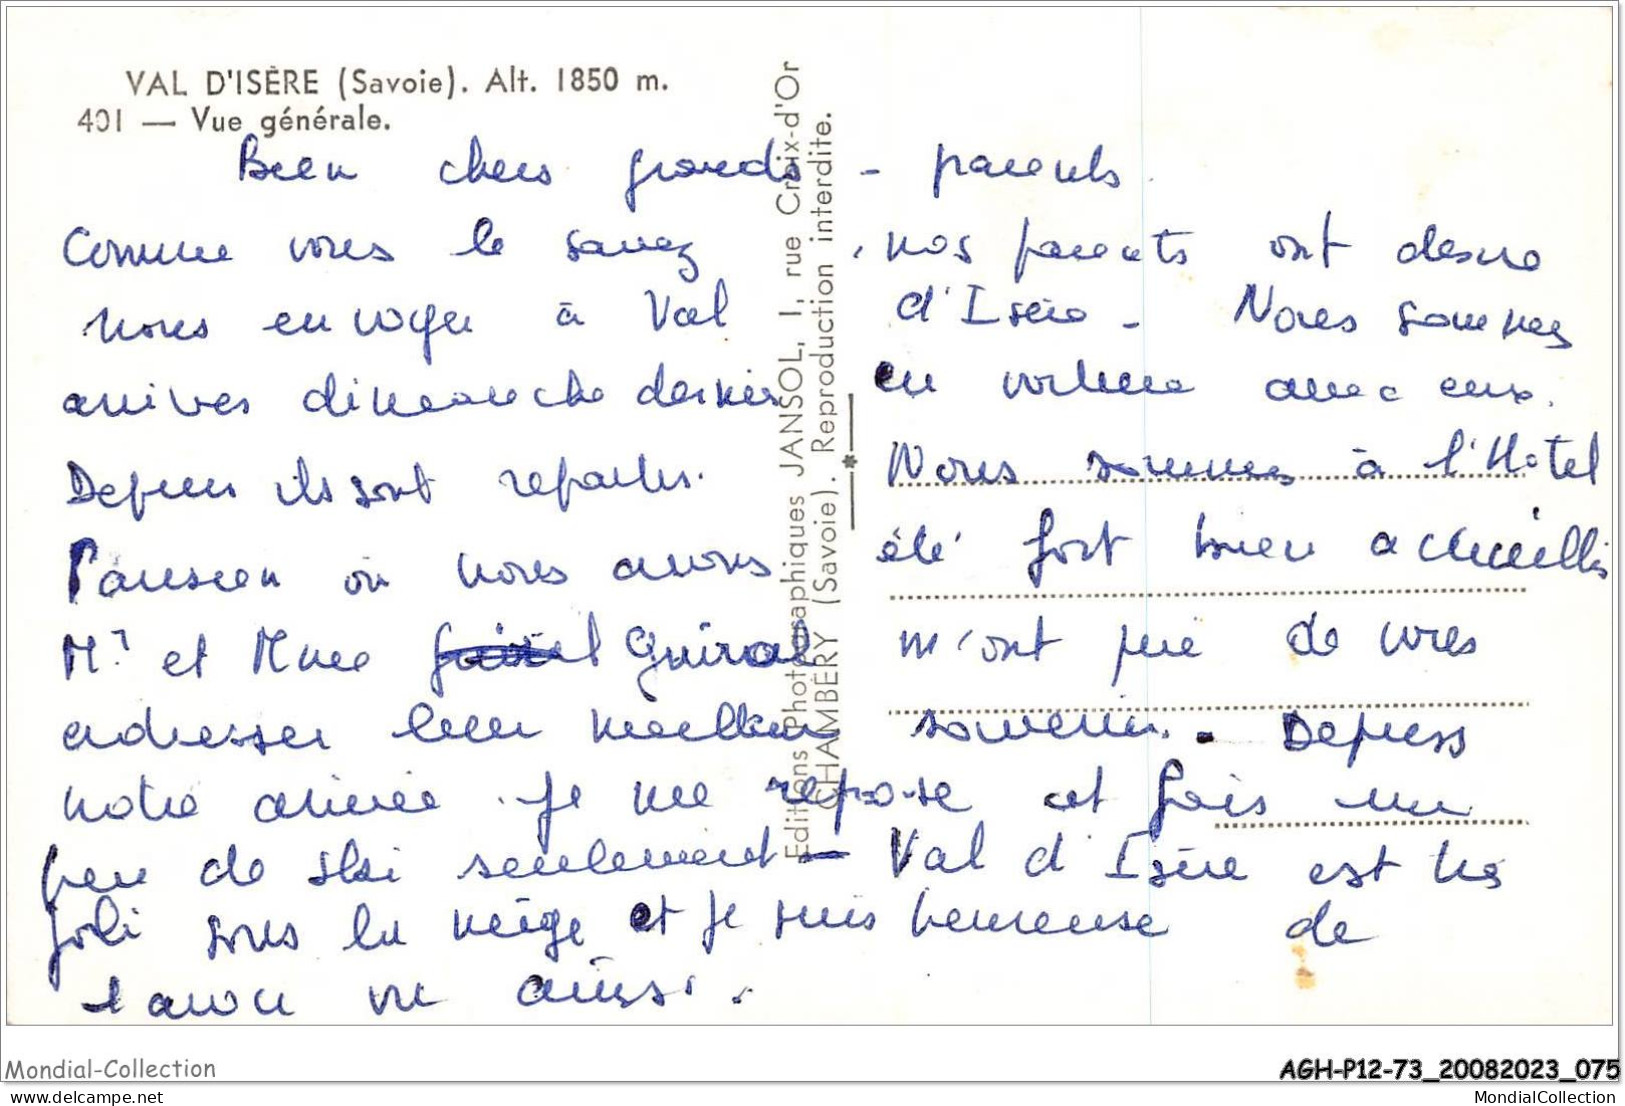 VAL D'ISÈRE (Savoie). Alt. 1850 m.
401 — Vue générale.
Bien chers grands - parents
Comme vous le savez, nos parents ont desiré
nous envoyer à Val d'Isère - Nous sommes
arrivés dimanche dernier en voiture avec eux.
Depuis ils sont repartis. Nous sommes à l'Hotel
Parisien où nous avons été fort bien accueillis
Mr et Mme Guiral m'ont prié de vous
adresser leur meilleur souvenir. - Depuis
notre arrivée je me repose et fais un
peu de ski seulement - Val d'Isère est très
joli sous la neige et je suis heureuse de
l'avoir vu ainsi.
Editions Photographiques JANSOL, 1, rue Croix-d'Or
CHAMBÉRY (Savoie). Reproduction interdite.
Mondial-Collection
AGH-P12-73_20082023_075
mondial-collection.com
MondialCollection